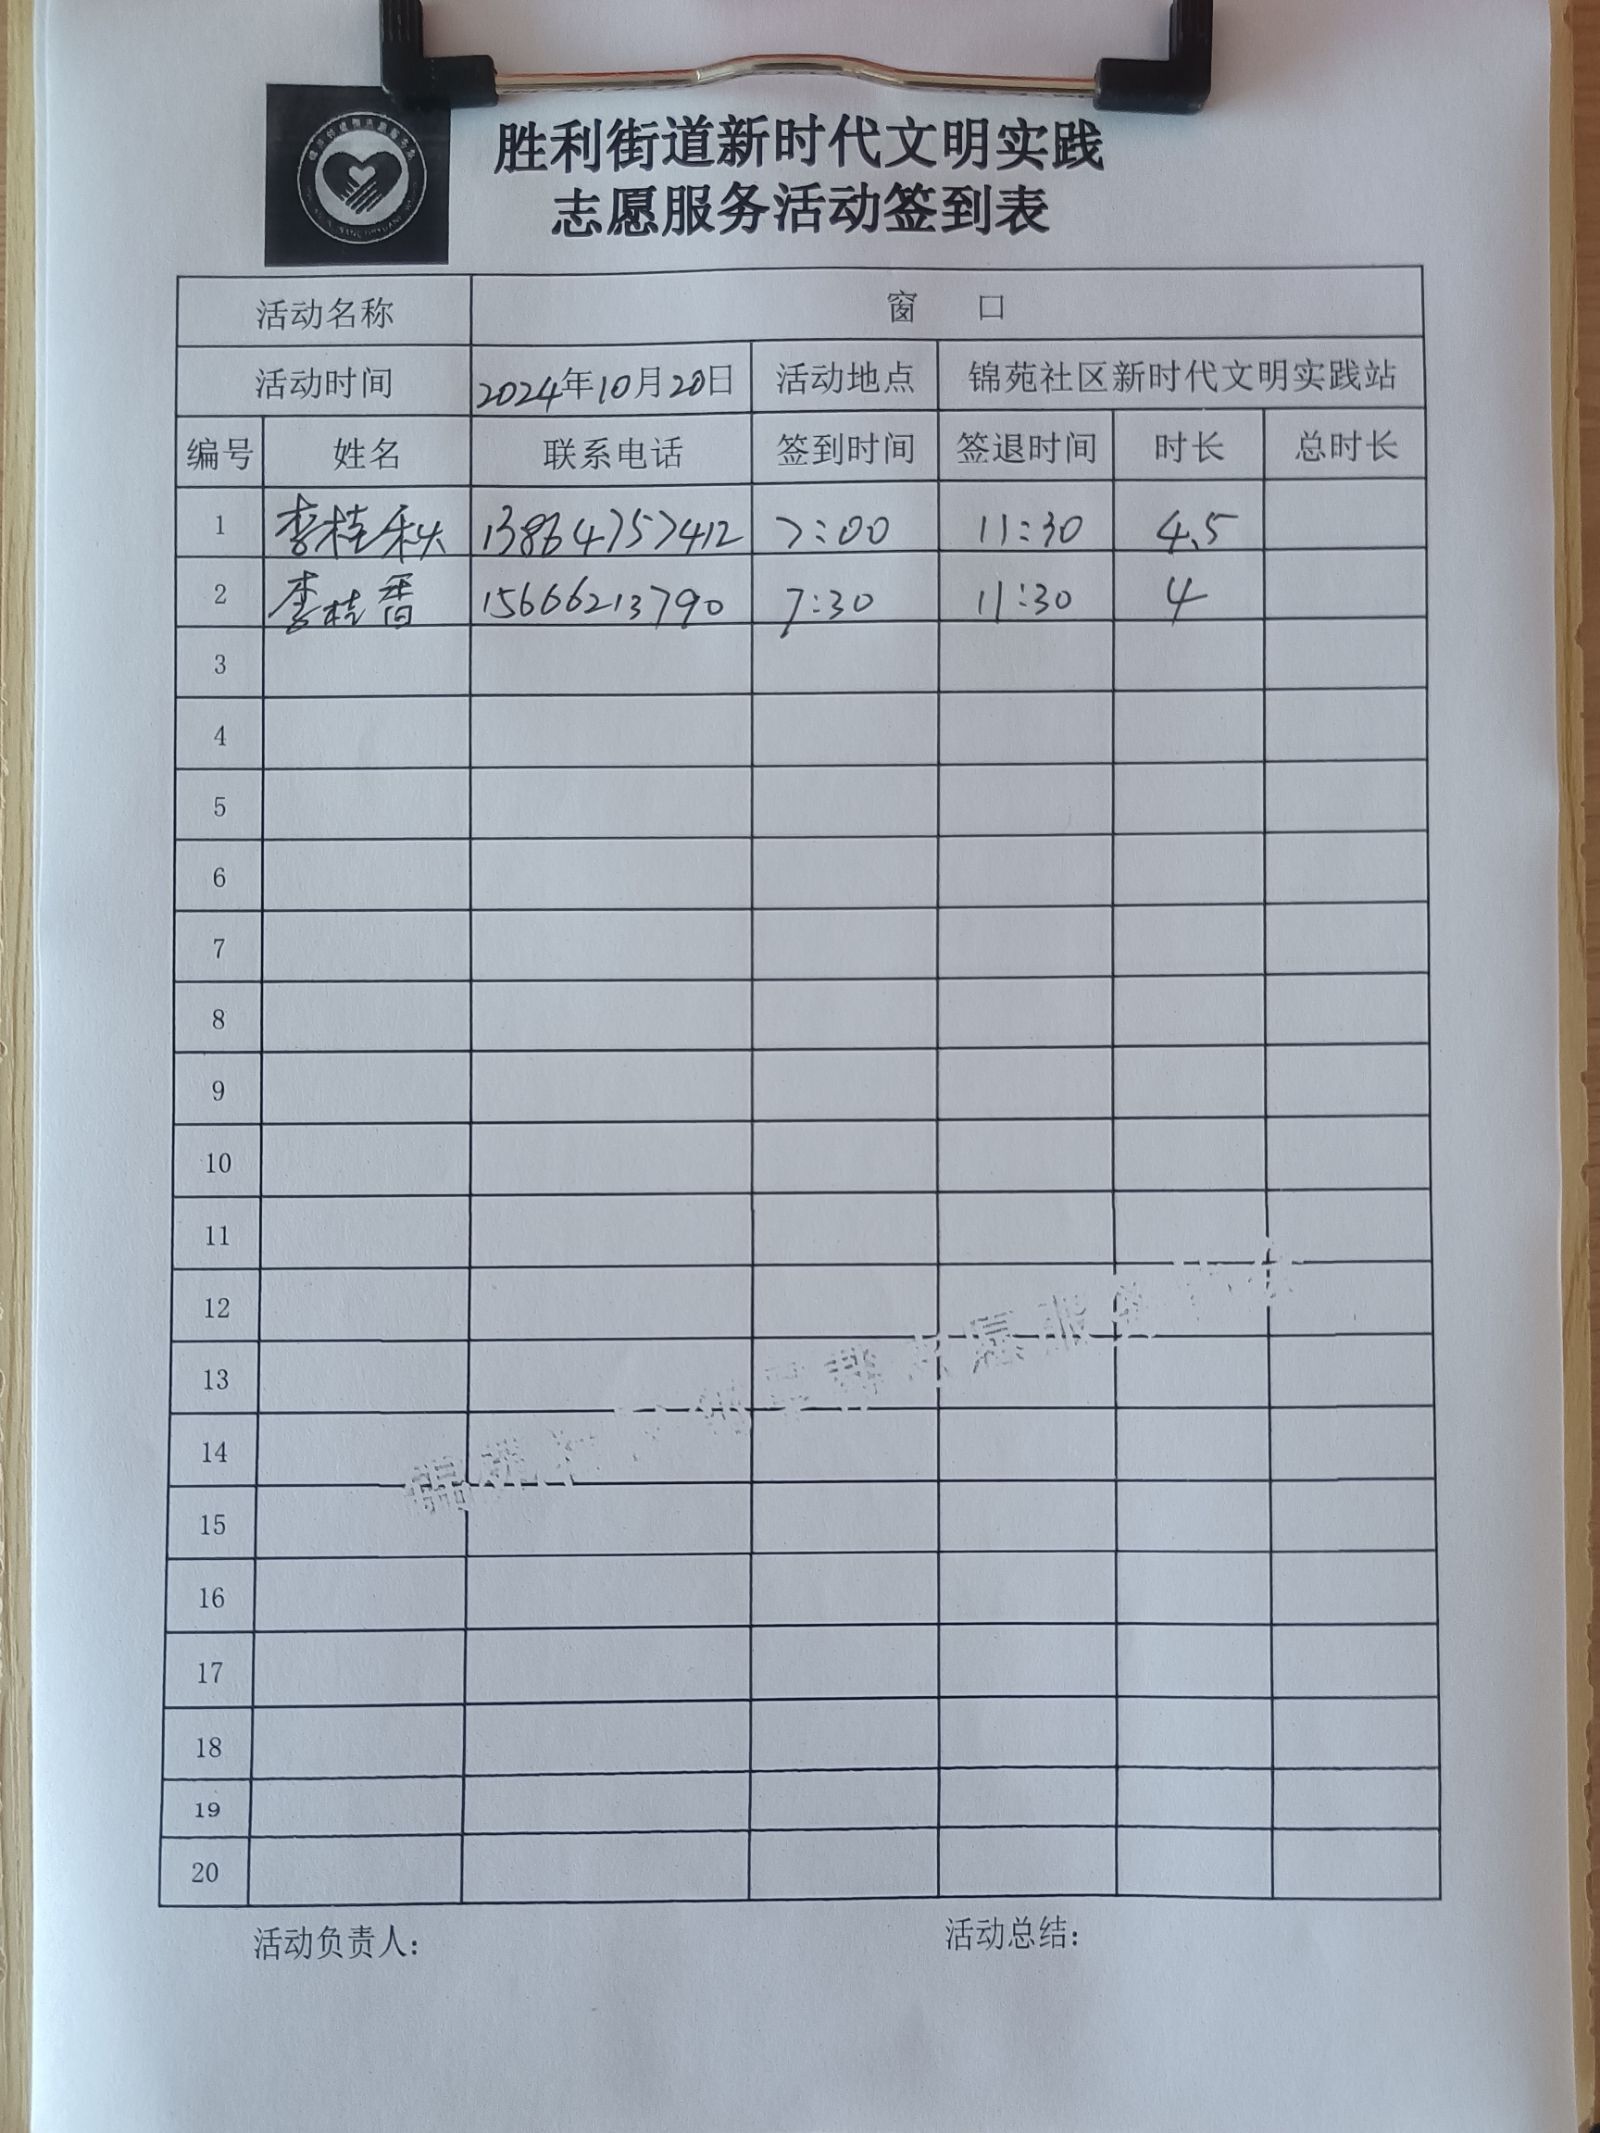 胜利街道新时代文明实践
志愿服务活动签到表
活动名称 窗 口
活动时间 2024年10月20日 活动地点 锦苑社区新时代文明实践站
编号 姓名 联系电话 签到时间 签退时间 时长 总时长
1 李桂秋 13864757412 7:00 11:30 4.5
2 李桂香 15666213790 7:30 11:30 4
3
4
5
6
7
8
9
10
11
12
13
14
15
16
17
18
19
20
活动负责人: 活动总结: